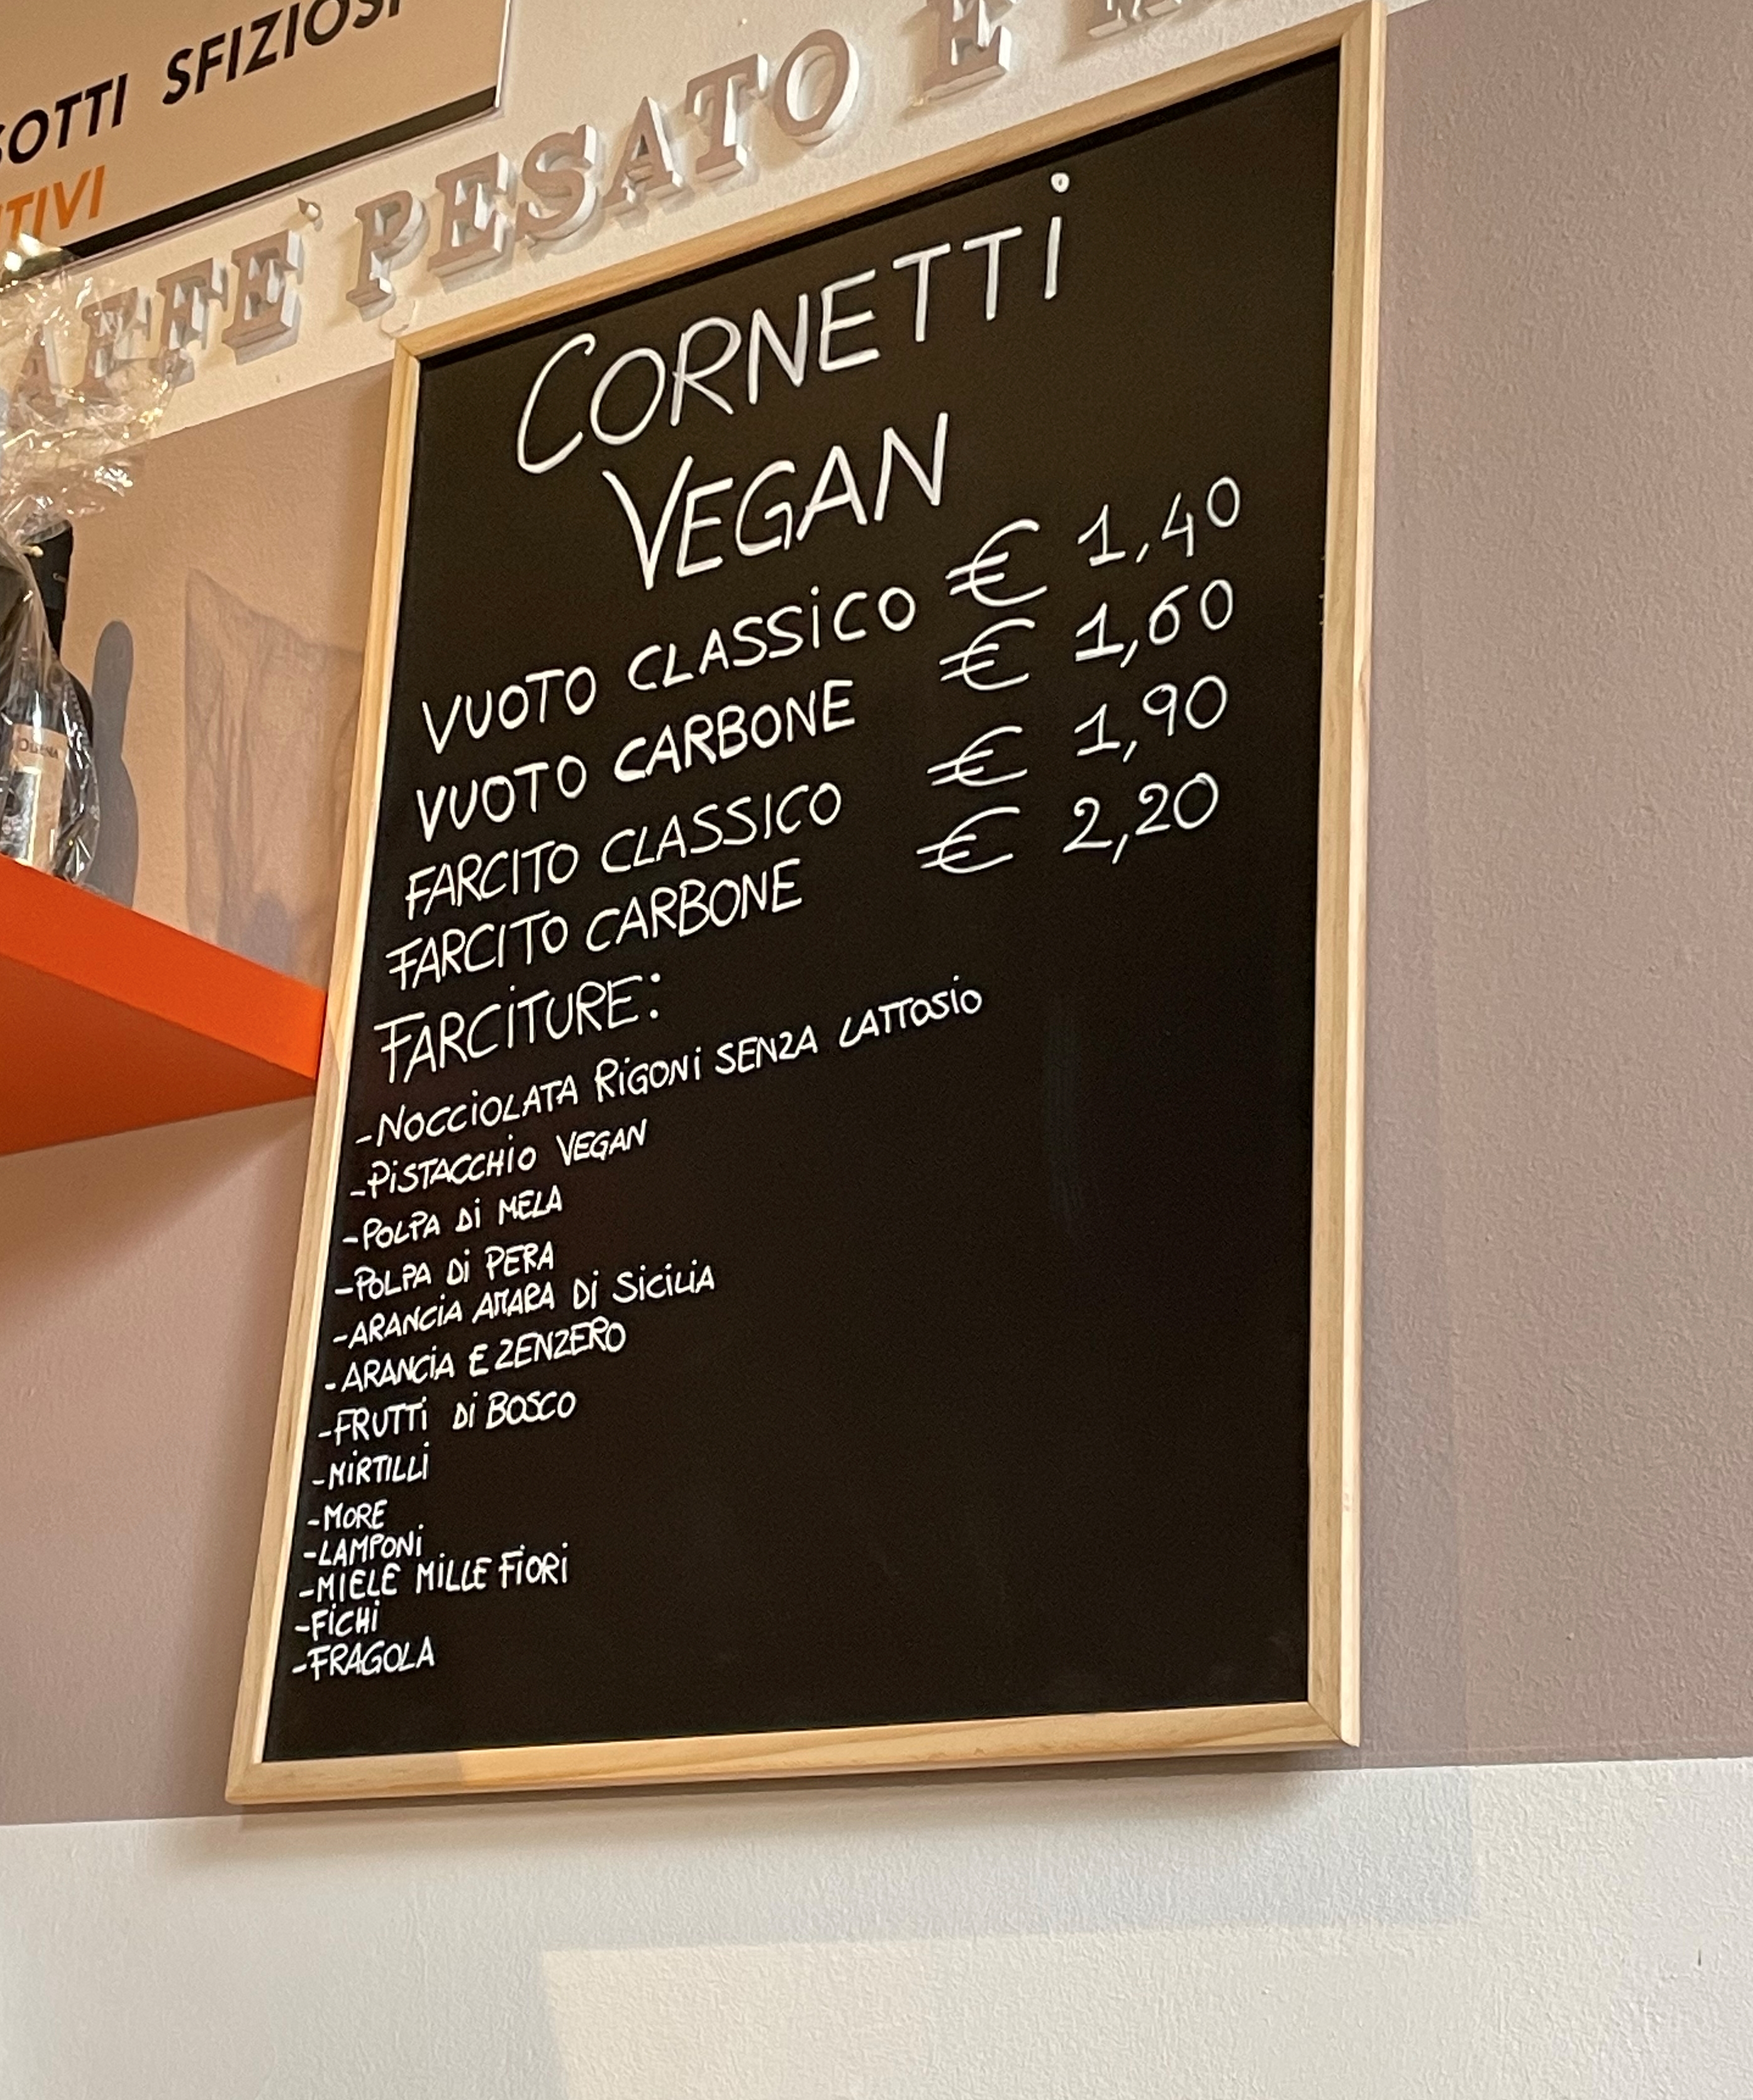 SFIZIOSI
TIVI
PESATO E
CORNETTI
VEGAN
VUOTO CLASSICO € 1,40
VUOTO CARBONE € 1,60
FARCITO CLASSICO € 1,90
FARCITO CARBONE € 2,20
FARCITURE:
-NOCCIOLATA RIGONI SENZA LATTOSIO
-PISTACCHIO VEGAN
-POLPA DI MELA
-POLPA DI PERA
-ARANCIA AMARA DI SICILIA
-ARANCIA E ZENZERO
-FRUTTI DI BOSCO
-MIRTILLI
-MORE
-LAMPONI
-MIELE MILLE FIORI
-FICHI
-FRAGOLA